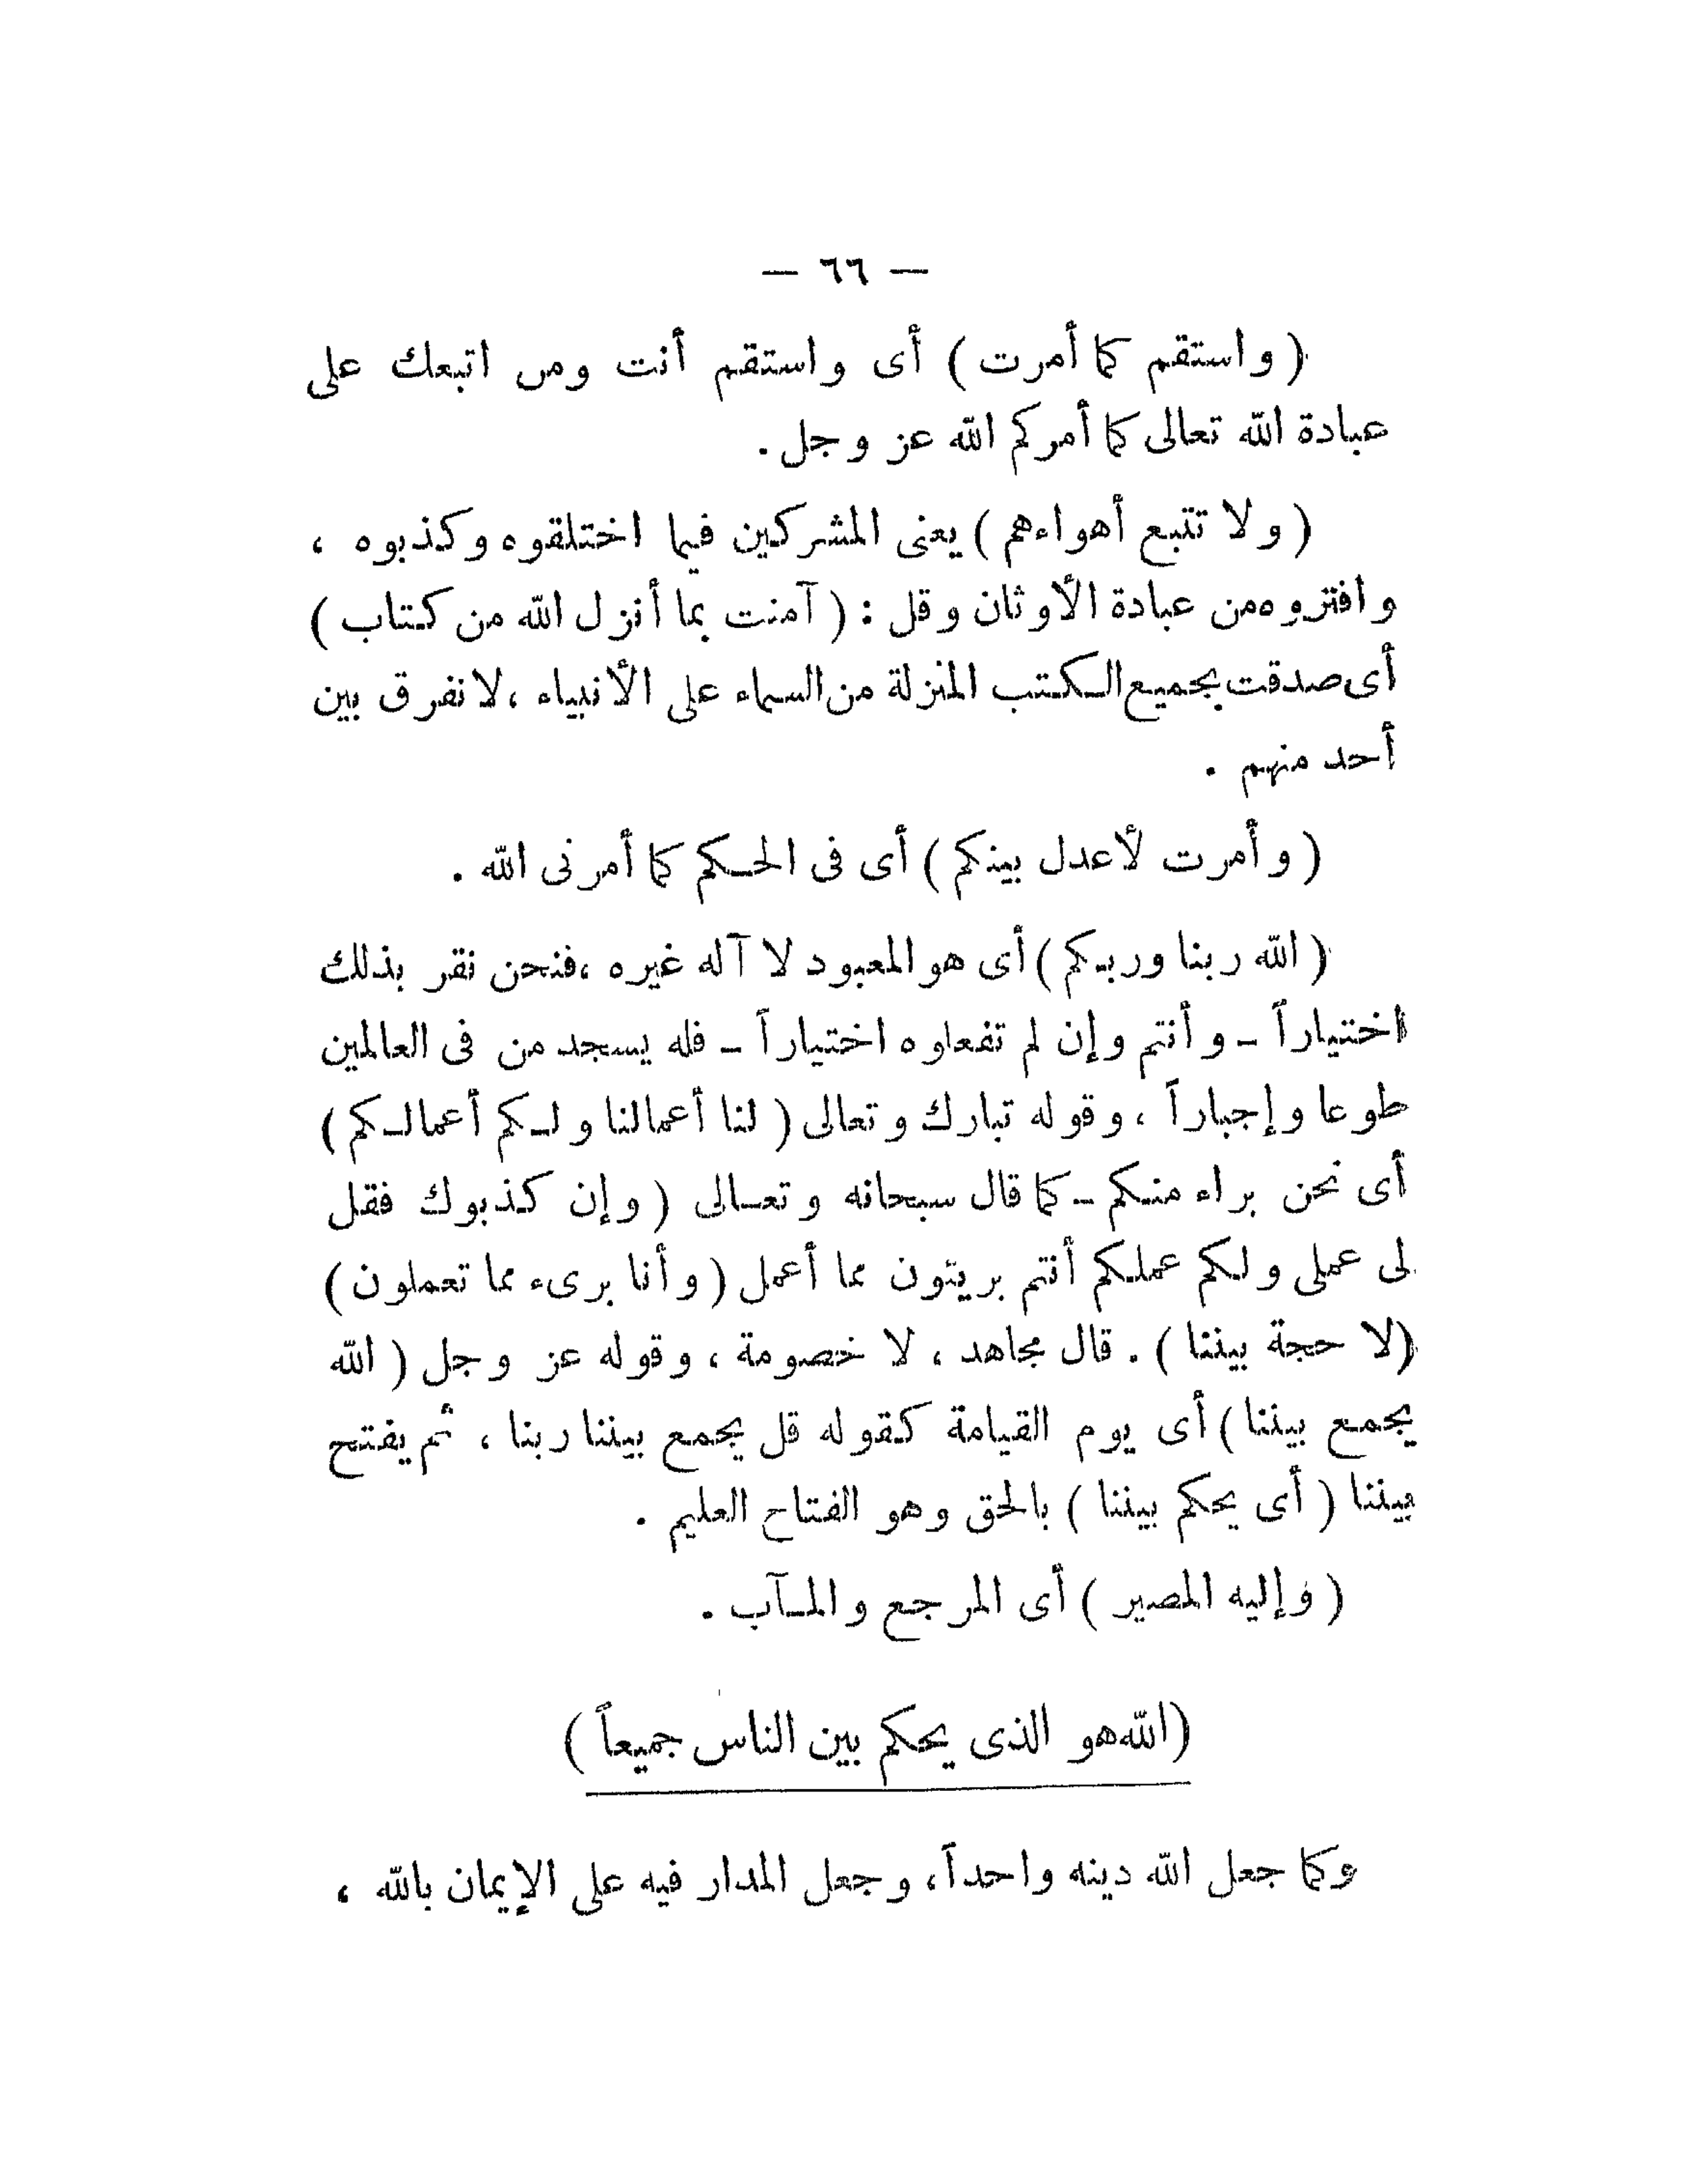 — ٦٦ —
( واستقم كما أمرت ) أى واستقم أنت ومن اتبعك على
عبادة الله تعالى كما أمركم الله عز وجل .
( ولا تتبع أهواءهم ) يعنى المشركين فيما اختلقوه وكذبوه ،
وافتروه من عبادة الأوثان وقل : ( آمنت بما أنزل الله من كتاب )
أى صدقت بجميع الكتب المنزلة من السماء على الأنبياء ، لا نفرق بين
أحد منهم .
( وأمرت لأعدل بينكم ) أى فى الحكم كما أمرنى الله .
( الله ربنا وربكم ) أى هو المعبود لا آله غيره ، فنحن نقر بذلك
اختياراً - وأنتم وإن لم تفعلوه اختياراً - فله يسجد من فى العالمين
طوعا وإجباراً ، وقوله تبارك وتعالى ( لنا أعمالنا ولكم أعمالكم )
أى نحن براء منكم - كما قال سبحانه وتعالى ( وإن كذبوك فقل
لى عملى ولكم عملكم أنتم بريئون مما أعمل ( وأنا برىء مما تعملون )
( لا حجة بيننا ) . قال مجاهد ، لا خصومة ، وقوله عز وجل ( الله
يجمع بيننا ) أى يوم القيامة كقوله قل يجمع بيننا ربنا ، ثم يفتح
بيننا ( أى يحكم بيننا ) بالحق وهو الفتاح العليم .
( وإليه المصير ) أى المرجع والمآب .
( الله هو الذى يحكم بين الناس جميعاً )
وكما جعل الله دينه واحداً ، وجعل المدار فيه على الإيمان بالله ،